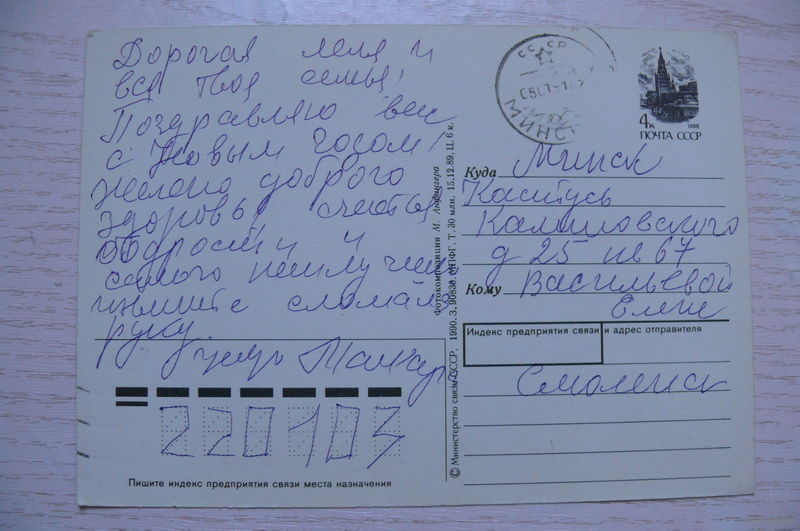 Дорогая Лена и
вся твоя семья!
Поздравляю вас
с Новым годом!
желаю доброго
здоровья счастья
бодрости и
самого наилучшего
извините сломала
руку.
целую
220103
Пишите индекс предприятия связи места назначения
Фотокомпозиция М.
© Министерство связи СССР, 1990. З. 90830. МПФГ. Т. 30 млн. 15.12.89. Ц. 6 к.
СССР
МИНСК
4к
1988
ПОЧТА СССР
Куда Минск
Кастусь
Калиновского
д 25 кв 67
Кому Васильевой
Елене
Индекс предприятия связи и адрес отправителя
Смоленск